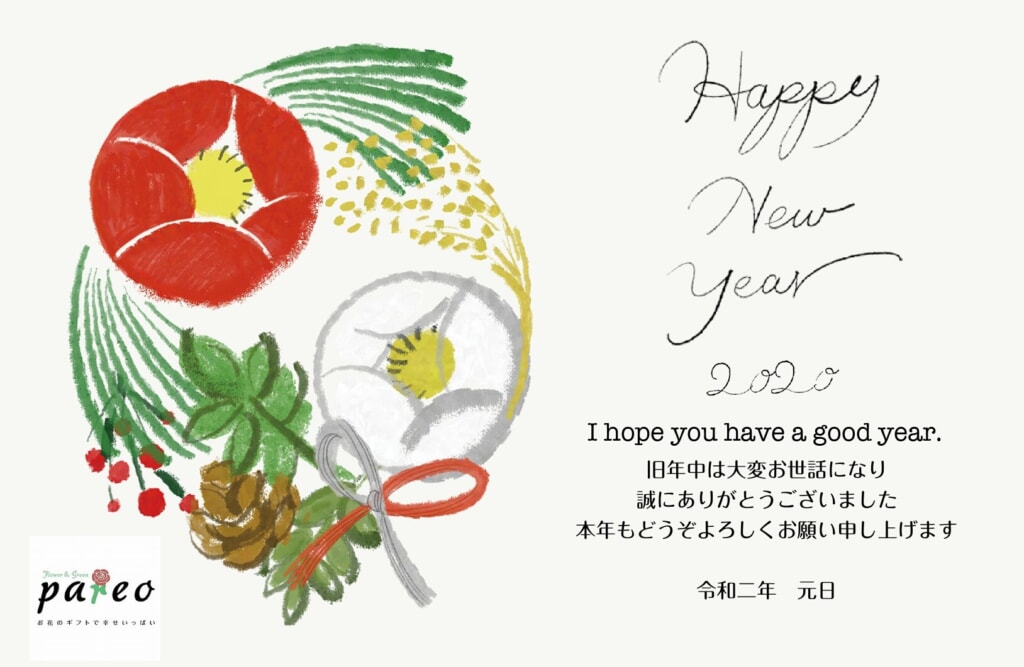 Happy
New
Year
2020
I hope you have a good year.
旧年中は大変お世話になり
誠にありがとうございました
本年もどうぞよろしくお願い申し上げます
令和二年　元日
Flower & Green
pareo
お花のギフトで幸せいっぱい